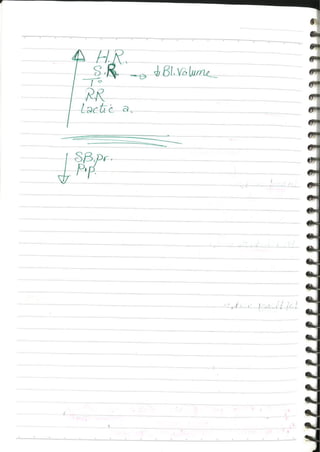 ↑ H.R.
S.R → ↓ Bl. Volume
T°
RR
Lactic a.
↓ S.B.pr.
P.p.